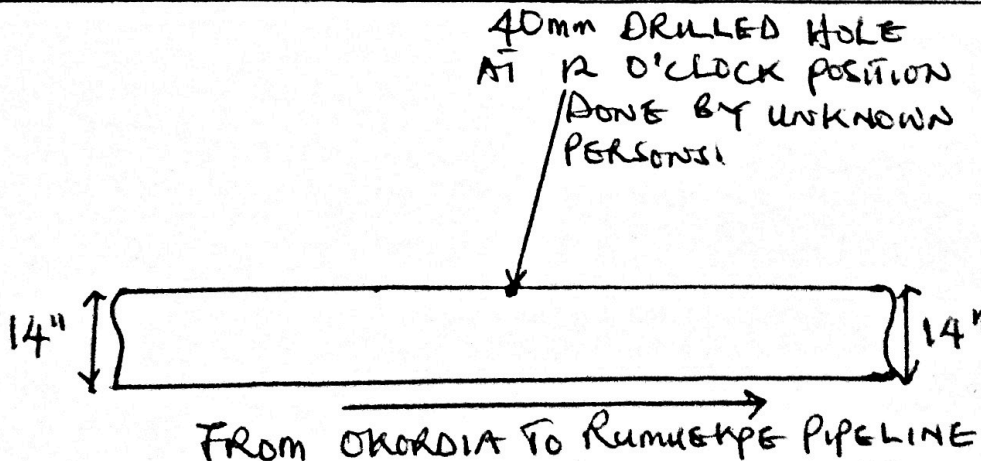 40mm DRILLED HOLE
AT 12 O'CLOCK POSITION
DONE BY UNKNOWN
PERSONS.
14"
14"
FROM OKORDIA TO RUMUEKPE PIPELINE